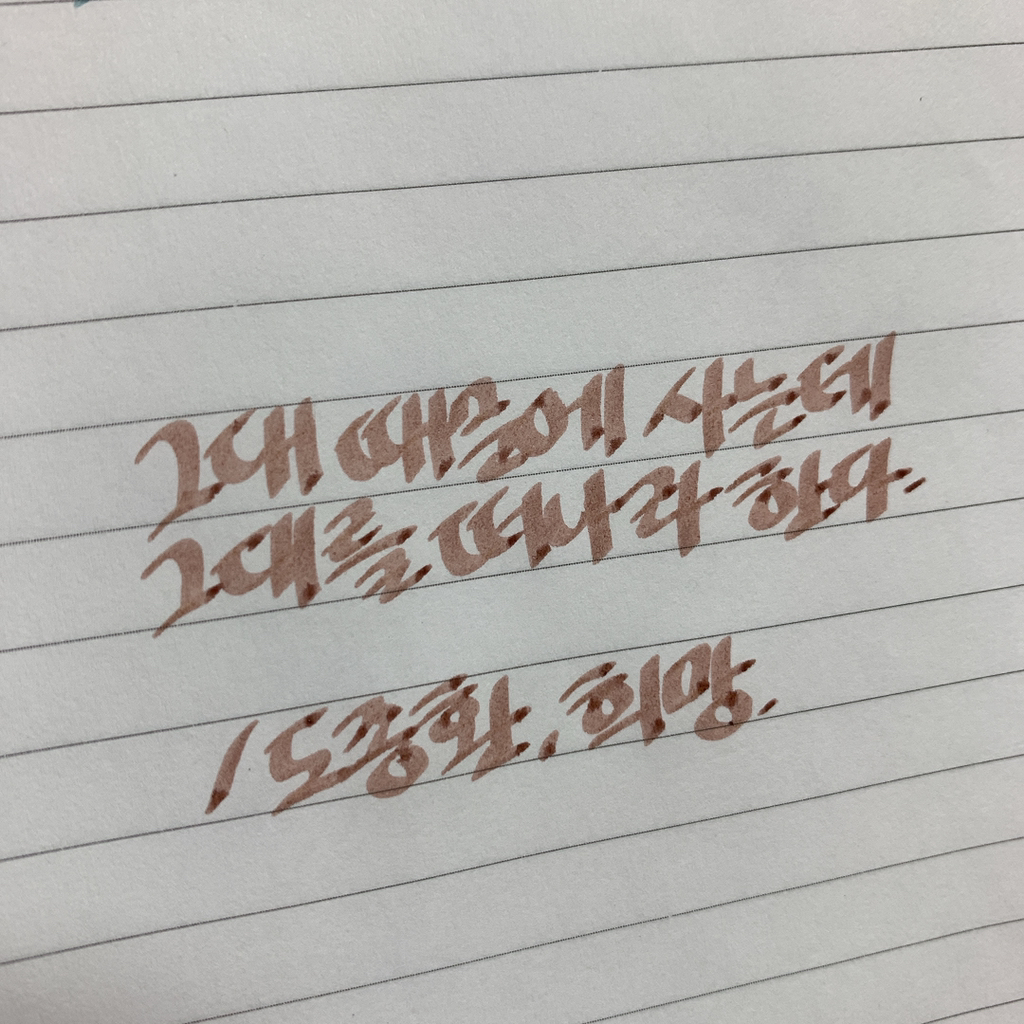 그대 때문에 사는데
그대를 떠나라 한다.
/ 도종환, 희망.